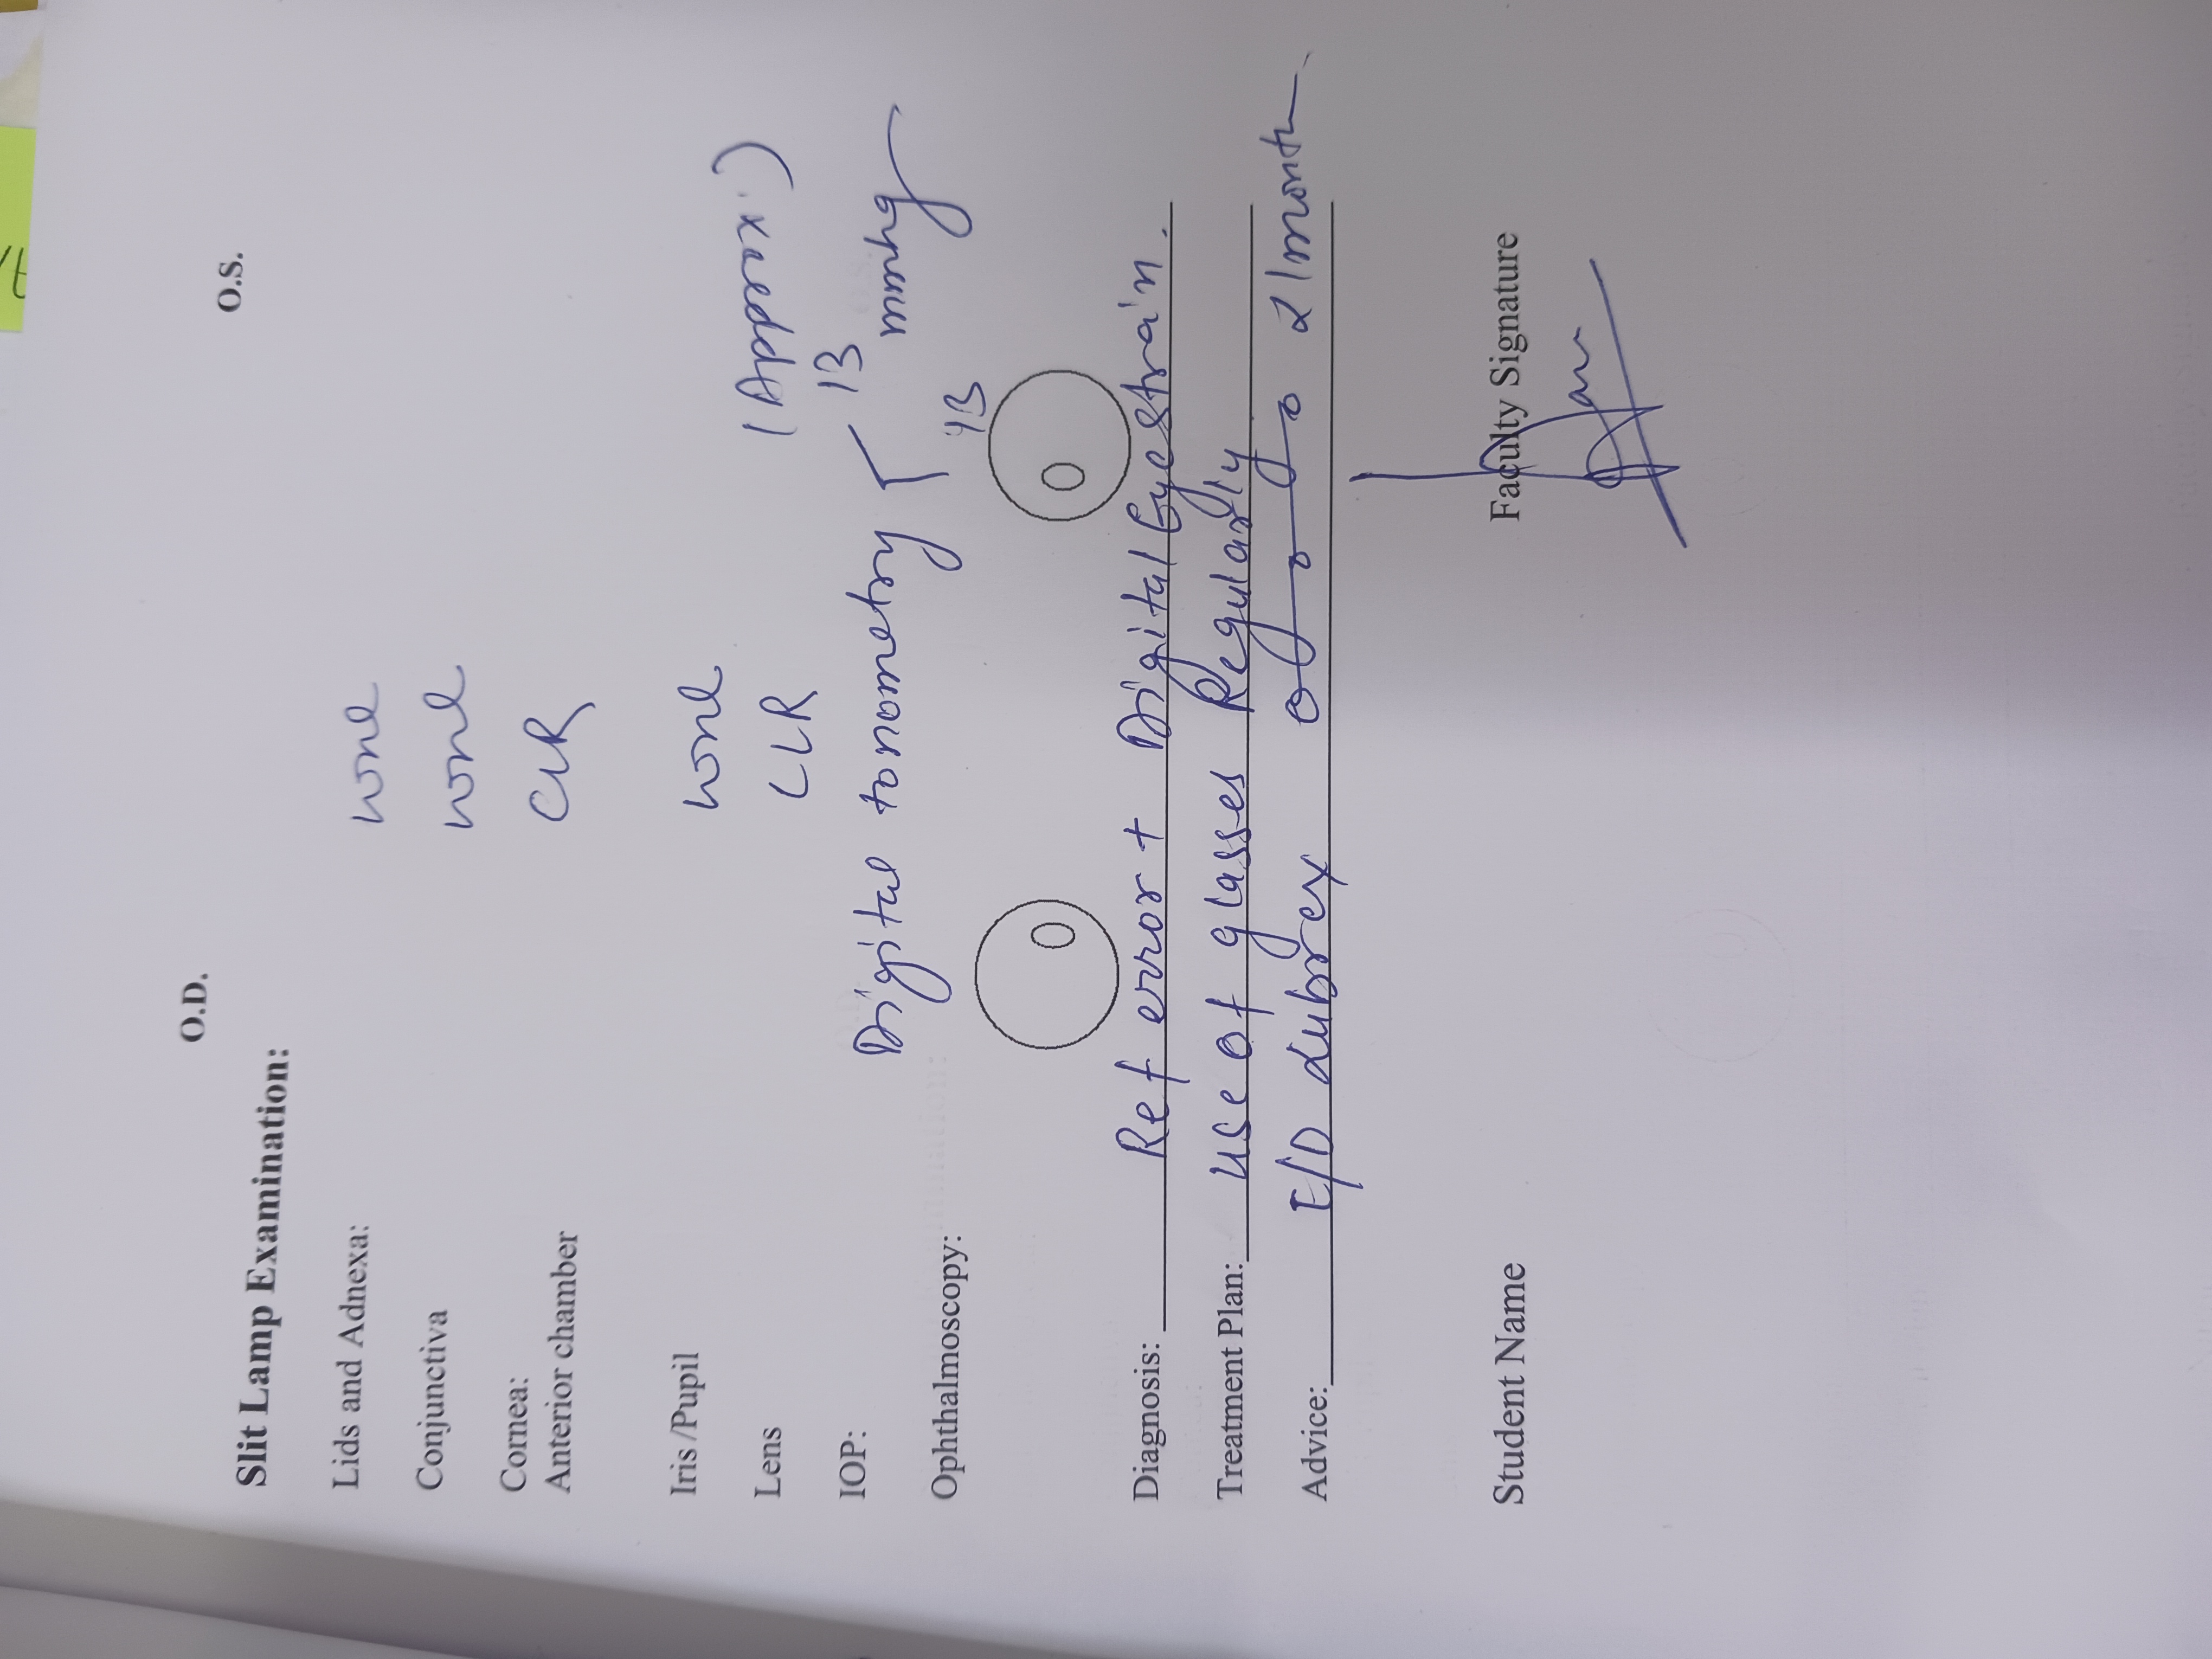 O.D. O.S.
Slit Lamp Examination:
Lids and Adnexa: WNL
Conjunctiva WNL
Cornea: CLR
Anterior chamber
Iris /Pupil WNL
Lens CLR
(Approx.)
IOP: Digital tonometry 13
mmhg
13
Ophthalmoscopy:
Diagnosis: Ref error + Digital Eyestrain.
Treatment Plan: use of glasses Regularly
Advice: E/D Lubrex 1month
Student Name Faculty Signature